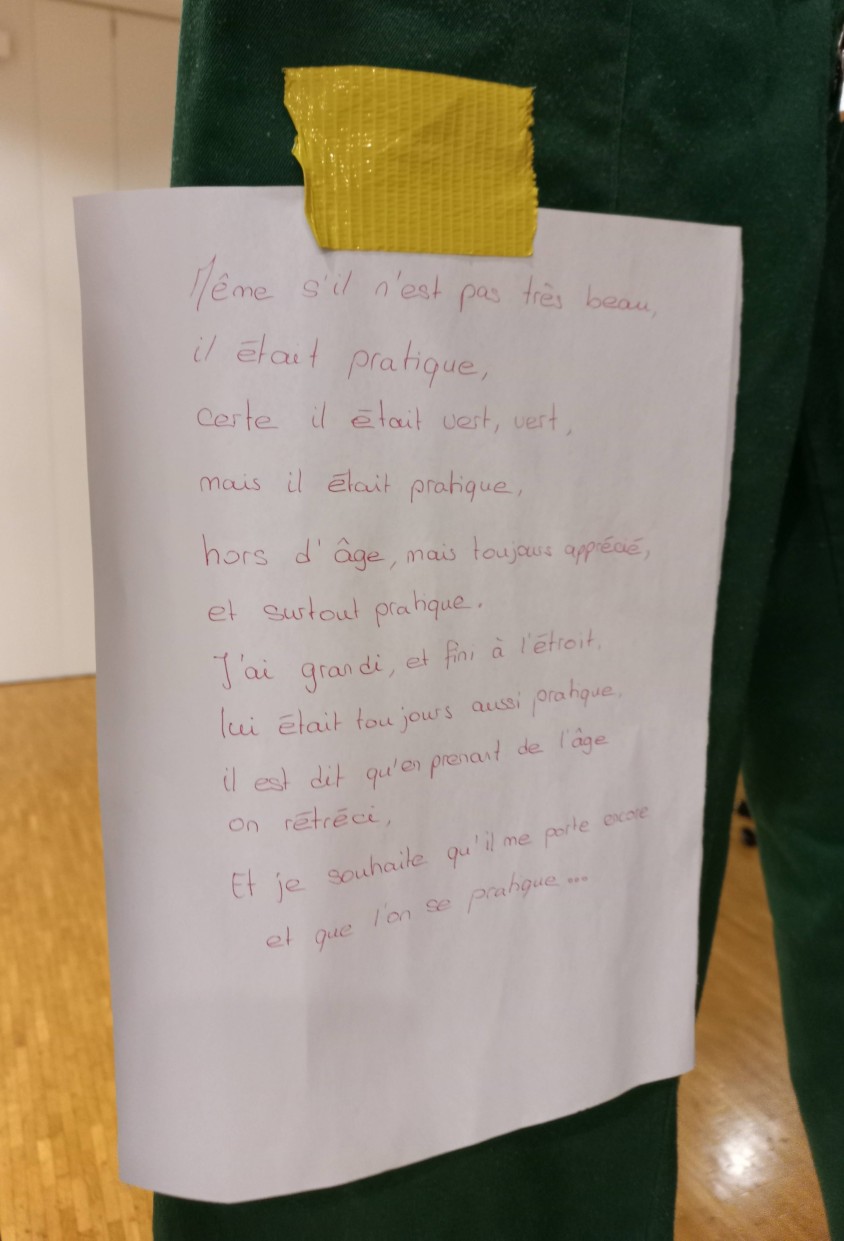 Même s'il n'est pas très beau,
il était pratique,
certe il était vert, vert,
mais il était pratique,
hors d'âge, mais toujours apprécié,
et surtout pratique.
J'ai grandi, et fini à l'étroit,
lui était toujours aussi pratique,
il est dit qu'en prenant de l'âge
on rétréci,
Et je souhaite qu'il me porte encore
et que l'on se pratique...